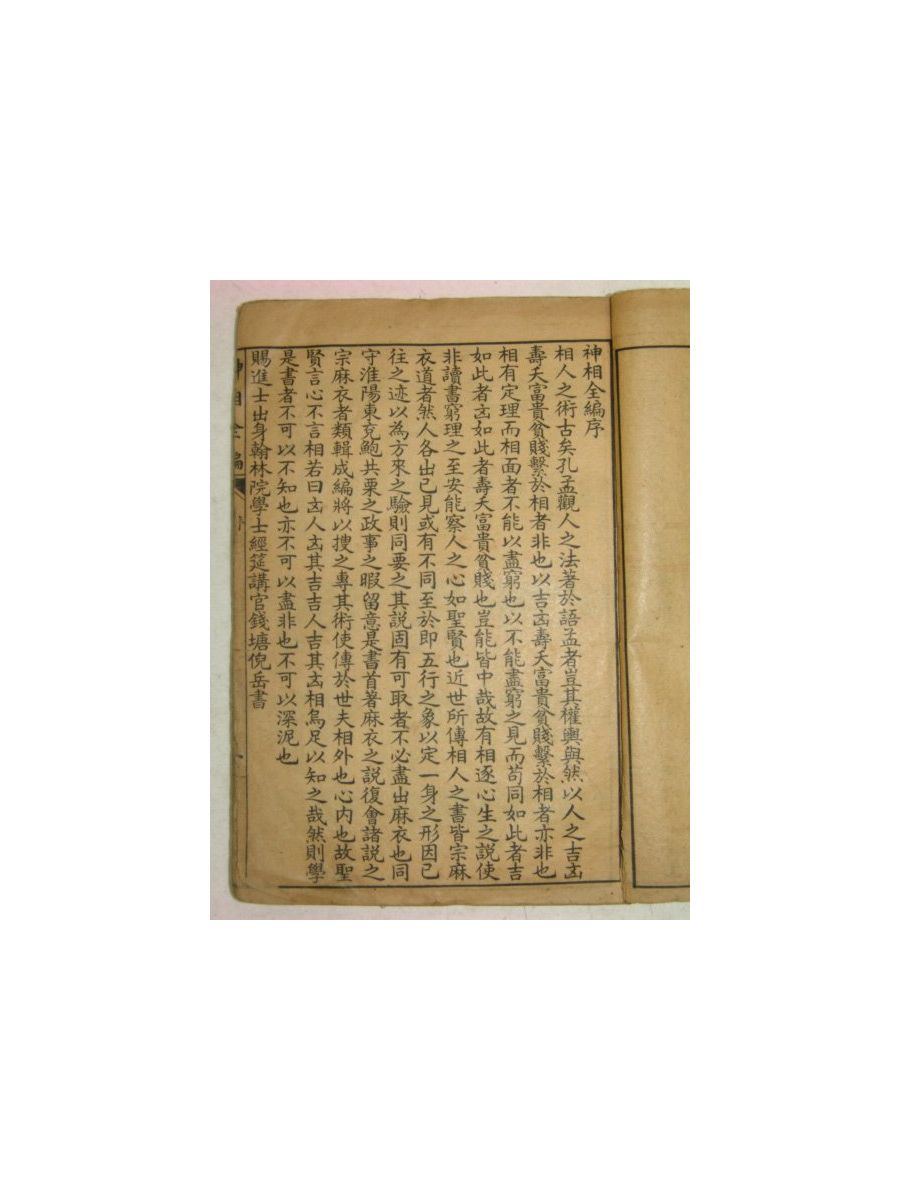 神相全編序
相人之術古矣孔孟觀人之法著於語孟者豈其權輿與然以人之吉㐫
壽夭富貴貧賤繫於相者非也以吉㐫壽夭富貴貧賤繫於相者亦非也
相有定理而相面者不能以盡窮也以不能盡窮之見而苟同如此者吉
如此者㐫如此者壽夭富貴貧賤也豈能皆中哉故有相逐心生之說使
非讀書窮理之至安能察人之心如聖賢也近世所傳相人之書皆宗麻
衣道者然人各出己見或有不同至於即五行之象以定一身之形因已
往之迹以為方來之驗則同要之其說固有可取者不必盡出麻衣也同
守淮陽東兗鮑共栗之政事之暇留意是書首著麻衣之說復會諸說之
宗麻衣者類輯成編將以搜之專其術使傳於世夫相外也心內也故聖
賢言心不言相若曰㐫人㐫其吉吉人吉其㐫相烏足以知之哉然則學
是書者不可以不知也亦不可以盡非也不可以深泥也
賜進士出身翰林院學士經筵講官錢塘倪岳書
神相全編 序 一